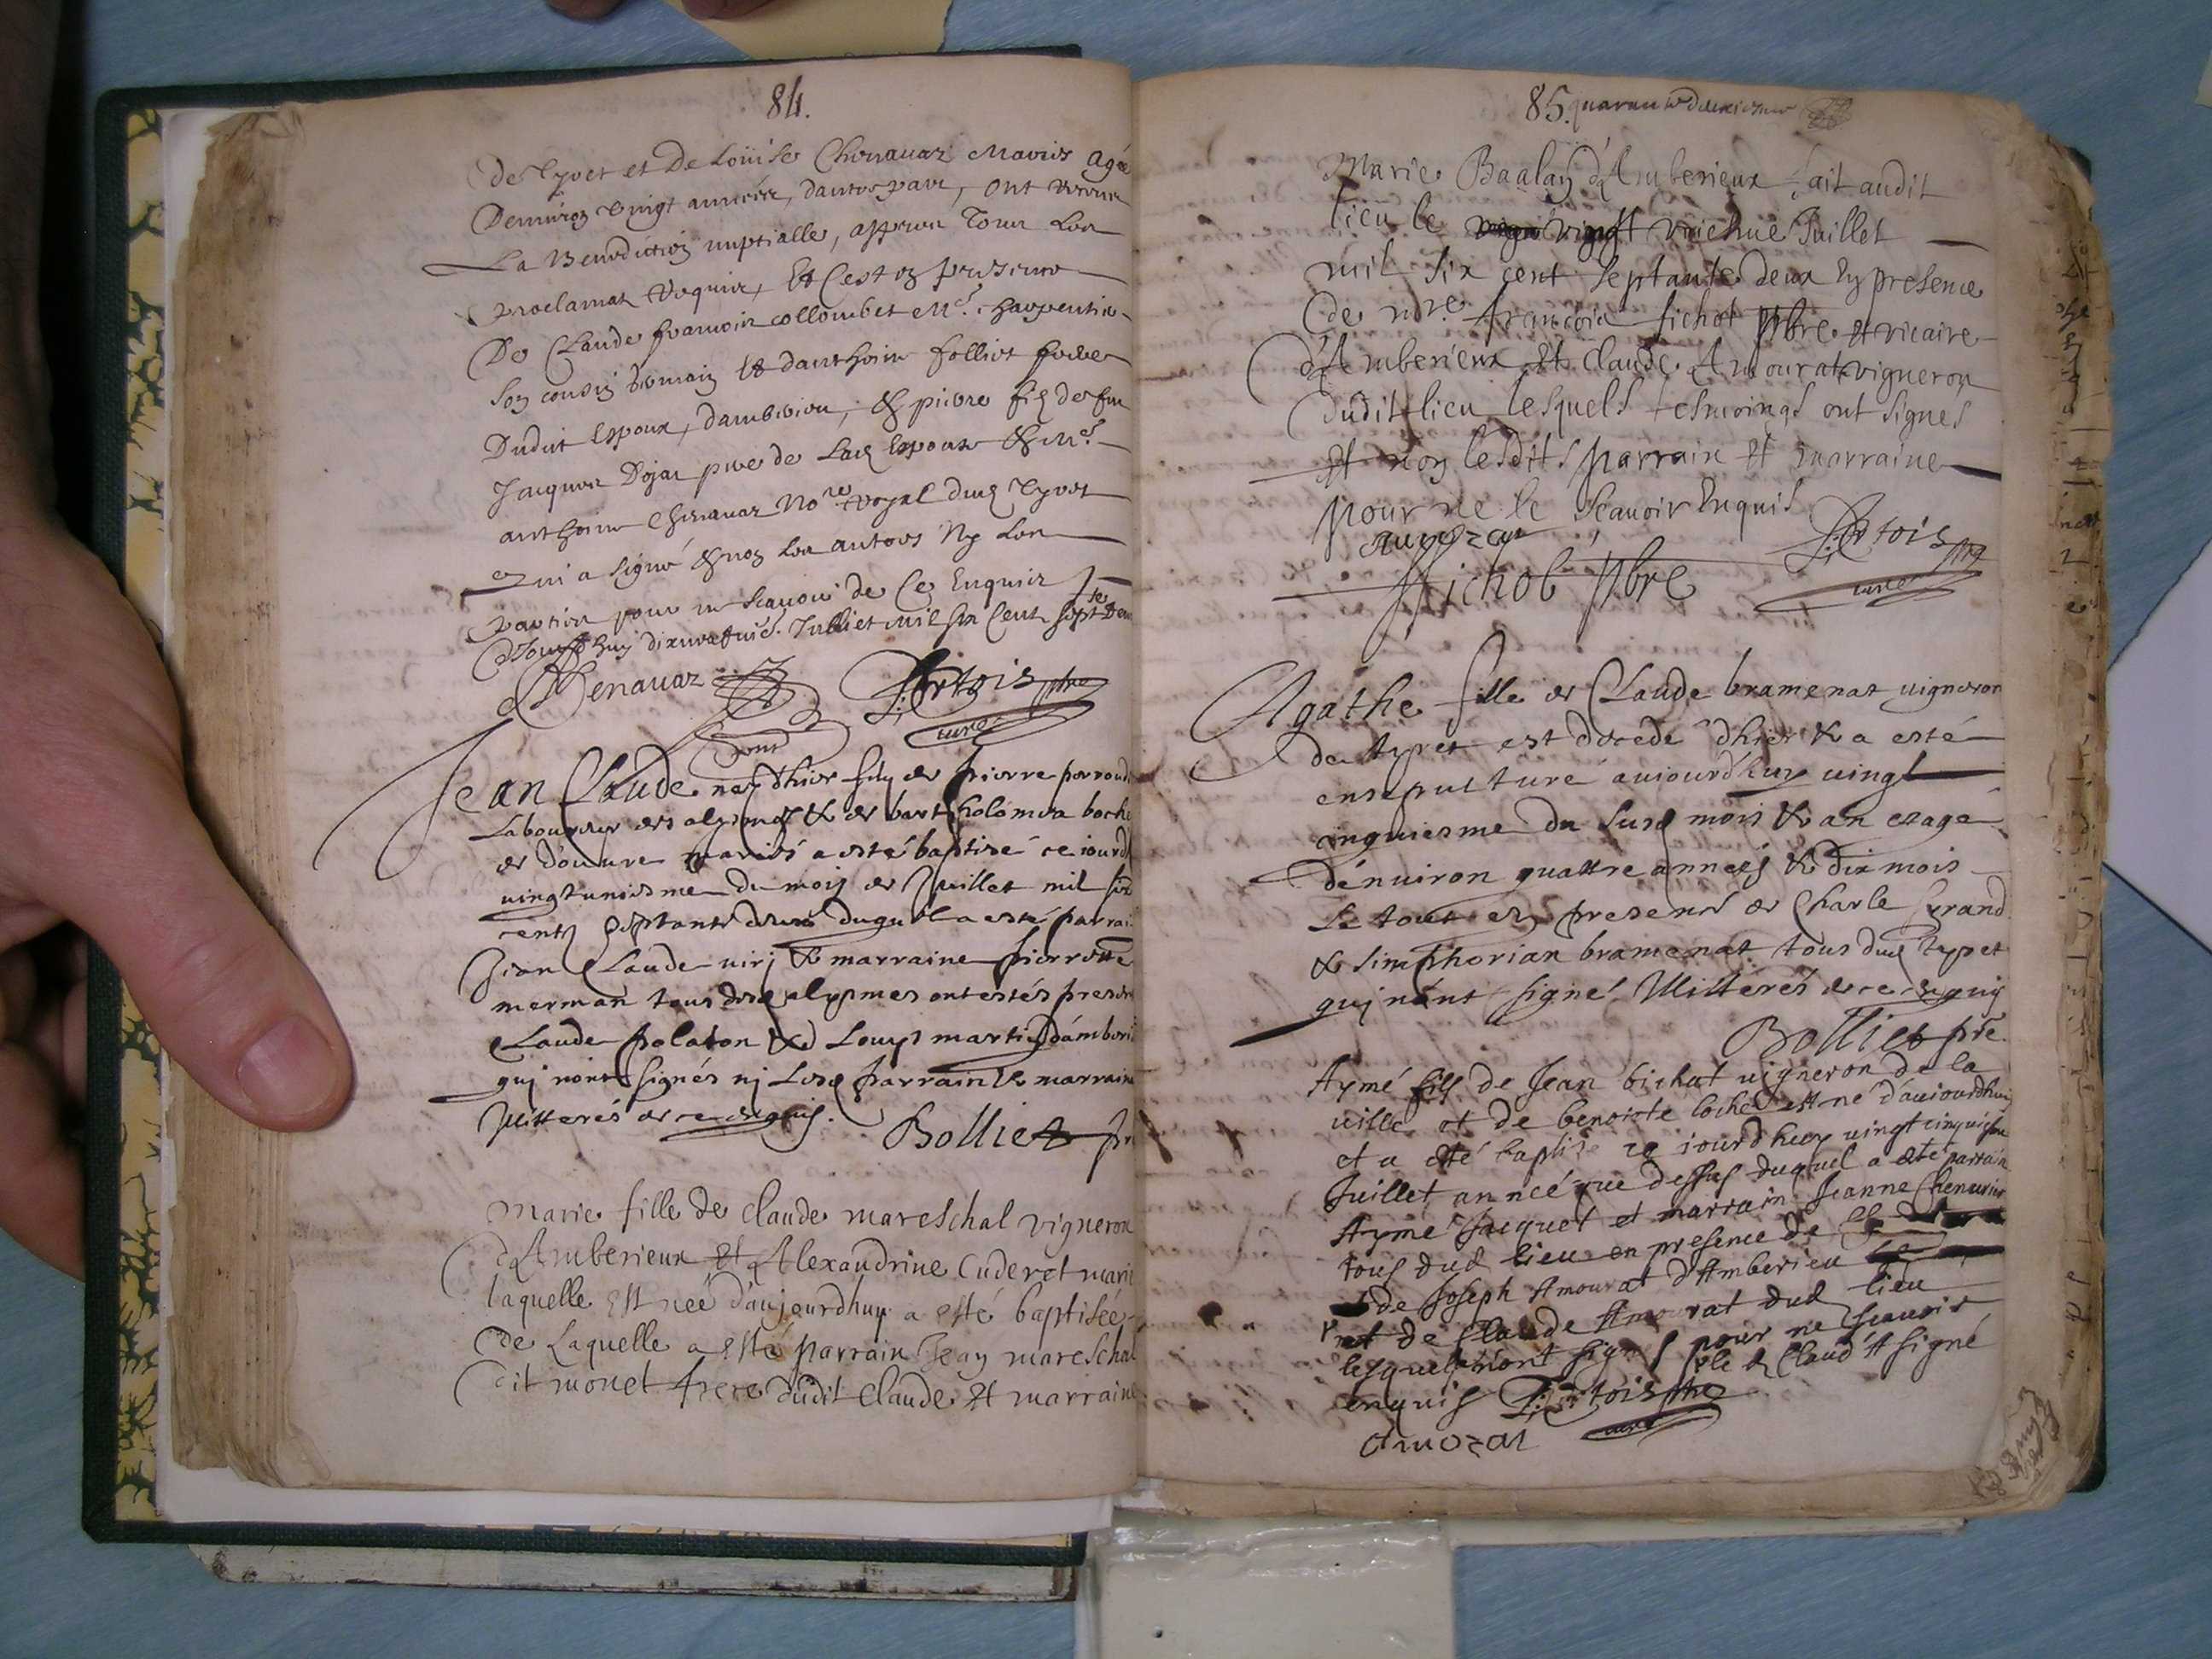 84.
de Tyret et de Loüise Chenauaz Mariés agée
Denuiron Vingt années, dautre part, ont
La Benediction nuptialle, appres Tous Les
proclamat Requis, Et Cest en presence
De Claude francois collombet Me. charpentier
Son cousin Germain Et danthoine folliet
Dudit Espoux, dambérieu, & pierre fils de feu
Jacques Dojat pere de Lad Espouse & Me.
anthoine Chenauaz No.re Royal dud Tyret
qui a signé & non Les autres Ny Les
parties pour ne scauoir de Ce Enquis
Jourdhuy dixneufuie. Julliet mil six Cent sept.te Deux
Chenauaz
P: Artois pbre
curé
Jean Claude nay dhier fils de pierre perroud
Laboureur des alymes & de bartholomea boche
de douure mariés a esté baptisé ce iourd
uingtuniesme du mois de Juillet mil six
cents septante deux duquel a esté parrain
Jean Claude uiri & marraine pierrette
merman tous desd alypmes ont estés presens
Claude polaton & Louys martin dámberi
quj nont signés nj Lesd parrain & marraine
Jllitterés de ce enquis.
Bolliet pr
Marie fille de Claude mareschal vigneron
d'Amberieux Et Alexandrine Cuderet marié
laquelle Est née d'aujourdhuy a esté baptisée
de Laquelle a esté parrain Jean mareschal
dit monet frere dudit Claude Et marraine
85. quarante deuxiesme
Marie Baalan d'Amberieux fait audit
lieu le vingt Juillet
mil six cent septante deux En presence
de mre. françois fichot pbre. Et vicaire
d'Amberieux Et Claude Amourat vigneron
dudit lieu lesquels tesmoings ont signés
Et non lesdits parrain Et marraine
pour ne le Scauoir Enquis
P: Artois pbre
curé
fichot pbre
Agathe fille de Claude bramenat uigneron
de tyret est decede dhier & a esté
ensepulturé auiourdhuy uingt
cinquiesme du susd mois & an eagé
dénuiron quattre années & dix mois
Le tout en presence de Charle Grand
& simphorian bramenat tous dud typet
quj nont signé Jllitterés de ce enquis
Bolliet pre.
Aymé fils de Jean bichat uigneron de la
uille et de benoite loche est né d'auiourdhuy
et a eté baptisé ce iourdhuy uingt cinquiesme
Juillet année que dessus duquel a eté parrain
Aymé Jacquet et marrain Jeanne Cheneurier
tous dud lieu en presence de
de Joseph Amourat d'Amberieu
et de Claude Amourat dud lieu
lesquels nont signés pour ne scauoir
enquis led Claud' A signé
P: Artois pbre
curé